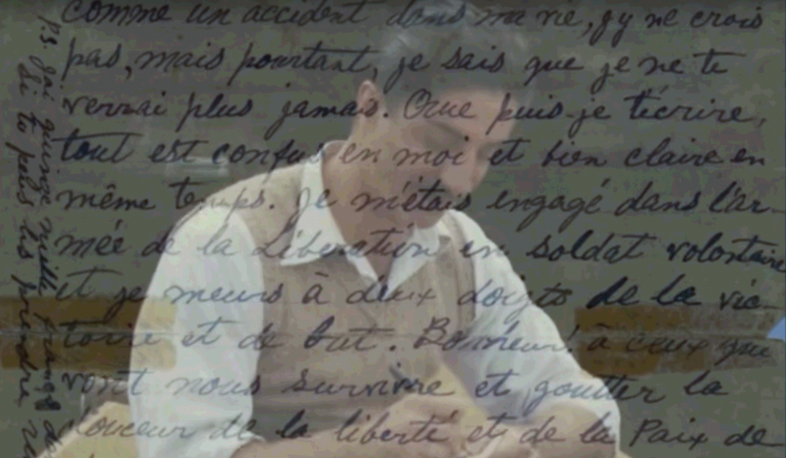 comme un accident dans ma vie, j'y ne crois
pas, mais pourtant, je sais que je ne te
verrai plus jamais. Que puis-je t'écrire,
tout est confus en moi et bien claire en
même temps. Je m'étais engagé dans l'ar-
mée de la Libération en soldat volontaire
et je meurs à deux doigts de la vic-
toire et de but. Bonheur! à ceux que
vont nous survivre et goutter la
douceur de la liberté et de la Paix de
Ps. J'ai quinze mille francs
si tu peux les prendre